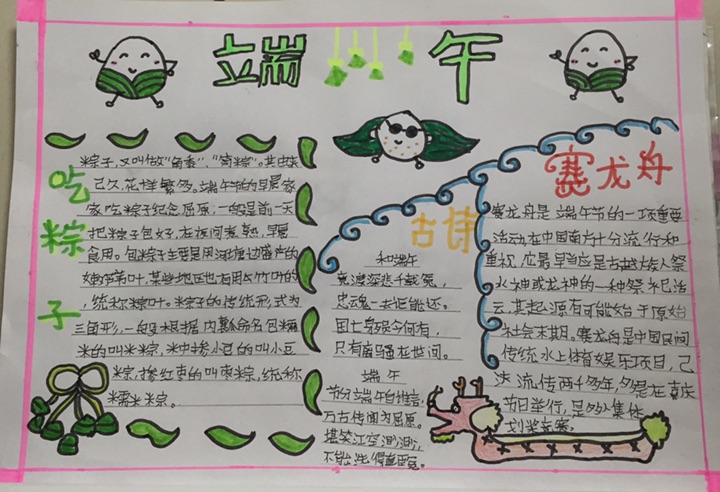 端午
吃粽子
粽子,又叫做"角黍"、"筒粽"。其由来
已久,花样繁多。端午节的早晨家
家吃粽子纪念屈原,一般是前一天
把粽子包好,在夜间煮熟,早晨
食用。包粽子主要是用河塘边盛产的
嫩芦苇叶,某些地区也有用竹叶的
,统称粽叶。粽子的传统形式为
三角形,一般根据内瓤命名,包糯
米的叫米粽,米中掺小豆的叫小豆
粽,掺红枣的叫枣粽,统称
糯米粽。
古诗
和端午
竞渡深悲千载冤,
忠魂一去讵能还。
国亡身殒今何有,
只有离骚在世间。
端午
节分端午自谁言,
万古传闻为屈原。
堪笑江空渺渺,
不能洗得直臣冤。
赛龙舟
赛龙舟是端午节的一项重要
活动,在中国南方十分流行和
重视,它最早当应是古越族人祭
水神或龙神的一种祭祀活
云,其起源有可能始于原始
社会末期。赛龙舟是中国民间
传统水上体育娱乐项目,已
流传两千多年,多是在喜庆
节日举行,是多外集体
划桨竞赛。